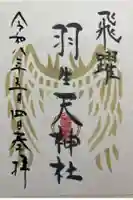 飛躍
羽生天神社
令和八年三月四日奉拝